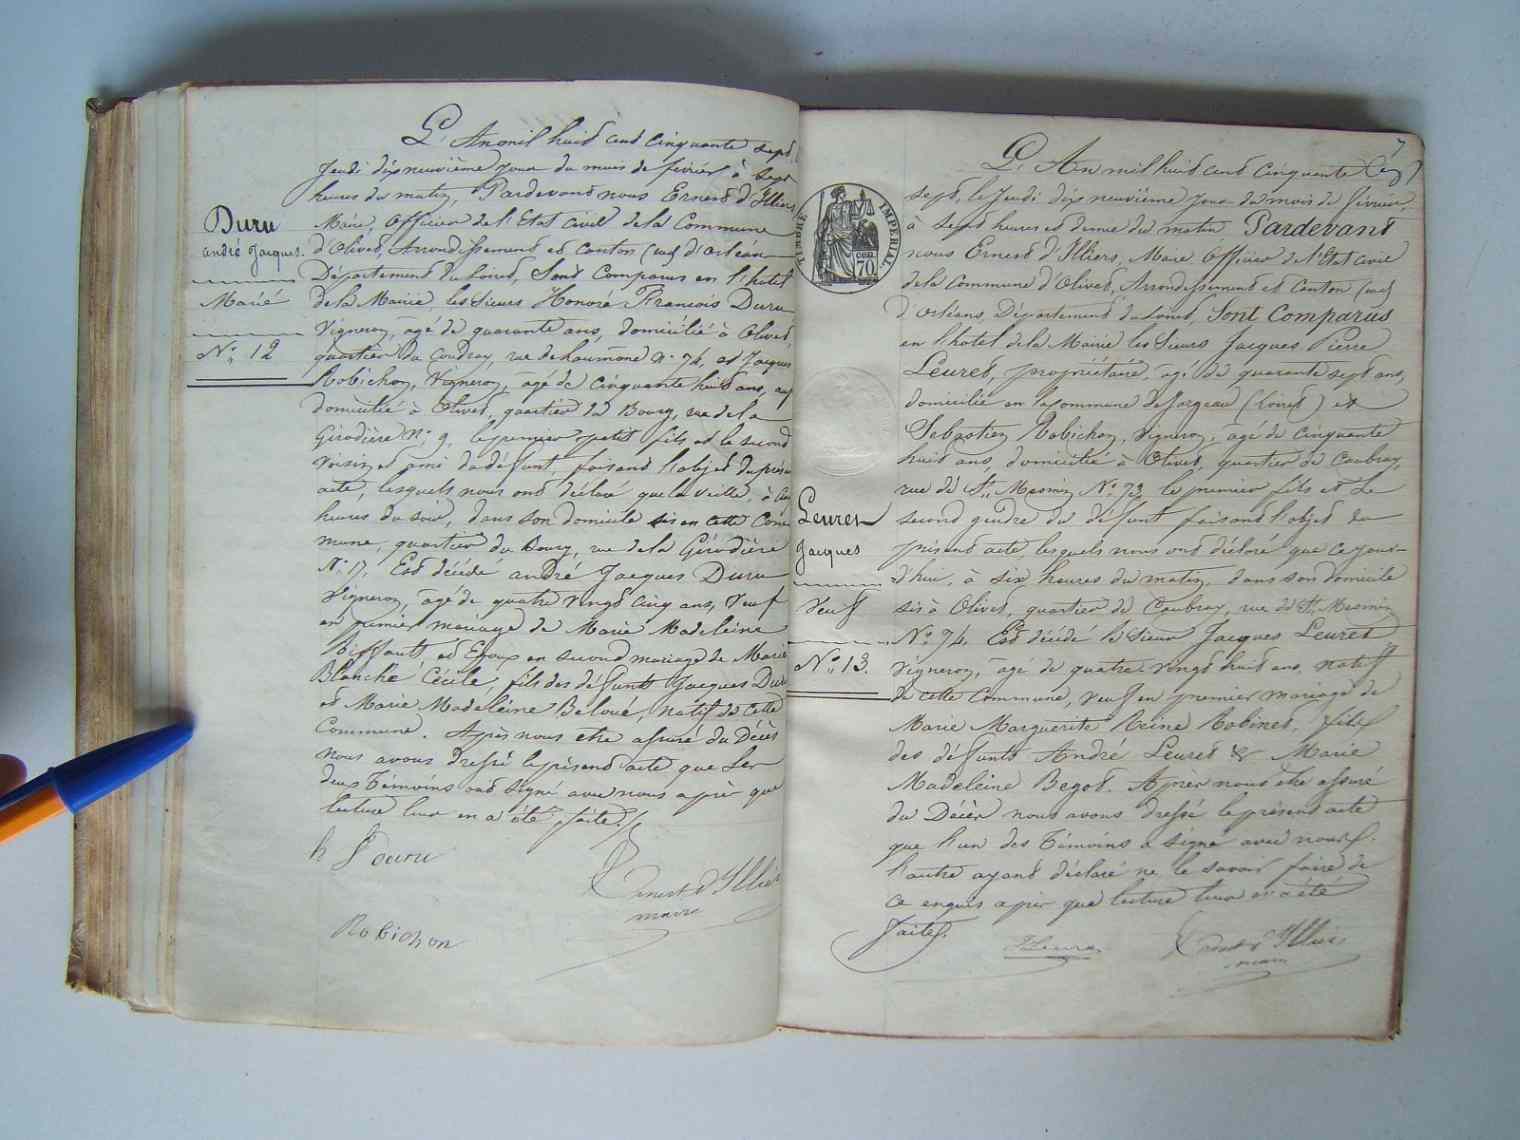 L'An mil huit cent cinquante sept
Jeudi dix neuvième jour du mois de février à sept
heures du matin, Pardevant nous Ernest d'Illiers
Maire, Officier de l'Etat civil de la Commune
d'Olivet, Arrondissement et Canton (sud) d'Orléans
Département du Loiret, Sont Comparus en l'hotel
de la Mairie, les Sieurs Honoré François Duru
Vigneron, agé de quarante ans, domicilié à Olivet,
quartier du Coudray, rue de N° 74, et Jacques
Robichon, Vigneron, agé de cinquante huit ans, aussi
domicilié à Olivet, quartier du Bourg, rue de la
Girodière N° 9, le premier petit fils et le second
voisin et ami du défunt, faisant l'objet du présent
acte, lesquels nous ont déclaré que la veille, à
heures du soir, dans son domicile sis en cette Com
mune, quartier du Bourg, rue de la Girodière
N° 17, Est décédé andré Jacques Duru
Vigneron, agé de quatre vingt cinq ans, Veuf
en premier mariage de Marie Madeleine
et Epoux en second mariage de Marie
Blanche Cécile, fils des défunts Jacques Duru
et Marie Madeleine Beloué, natif de cette
Commune. Après nous etre assuré du Décès
nous avons dressé le présent acte que les
deux Témoins ont signé avec nous après que
lecture leur en a été faite.
Duru
andré Jacques.
Marié
N° 12
h f duru
Ernest d'Illiers
maire
Robichon
7
L'An mil huit cent cinquante
sept, le Jeudi dix neuvième jour du mois de février,
à sept heures et demie du matin Pardevant
nous Ernest d'Illiers, Maire Officier de l'Etat civil
de la Commune d'Olivet, Arrondissement et Canton (sud)
d'Orléans, Département du Loiret, Sont Comparus
en l'hotel de la Mairie les Sieurs Jacques Pierre
Leuret, propriétaire, agé de quarante sept ans,
domicilié en la commune de Jargeau (Loiret) et
Sebastien Robichon, Vigneron, agé de cinquante
huit ans, domicilié à Olivet, quartier de Coubray,
rue de St. Mesmin N° 73, le premier fils et le
second gendre du défunt faisant l'objet du
présent acte, lesquels nous ont déclaré que ce jour-
d'hui, à six heures du matin, dans son domicile
sis à Olivet, quartier de Coubray, rue de St. Mesmin
N° 74, Est décédé le Sieur Jacques Leuret
Vigneron, agé de quatre-vingt huit ans, natif
de cette Commune, veuf en premier mariage de
Marie Marguerite Reine Robinet, fils
des défunts André Leuret & Marie
Madeleine Begot. Après nous etre assuré
du Décès nous avons dressé le présent acte
que l'un des Témoins a signé avec nous
l'autre ayant déclaré ne le savoir faire de
ce enquis après que lecture leur en a été
faite.
TIMBRE IMPERIAL
CEN.
70
Leuret
Jacques
Veuf
N° 13.
Ernest d'Illiers
maire